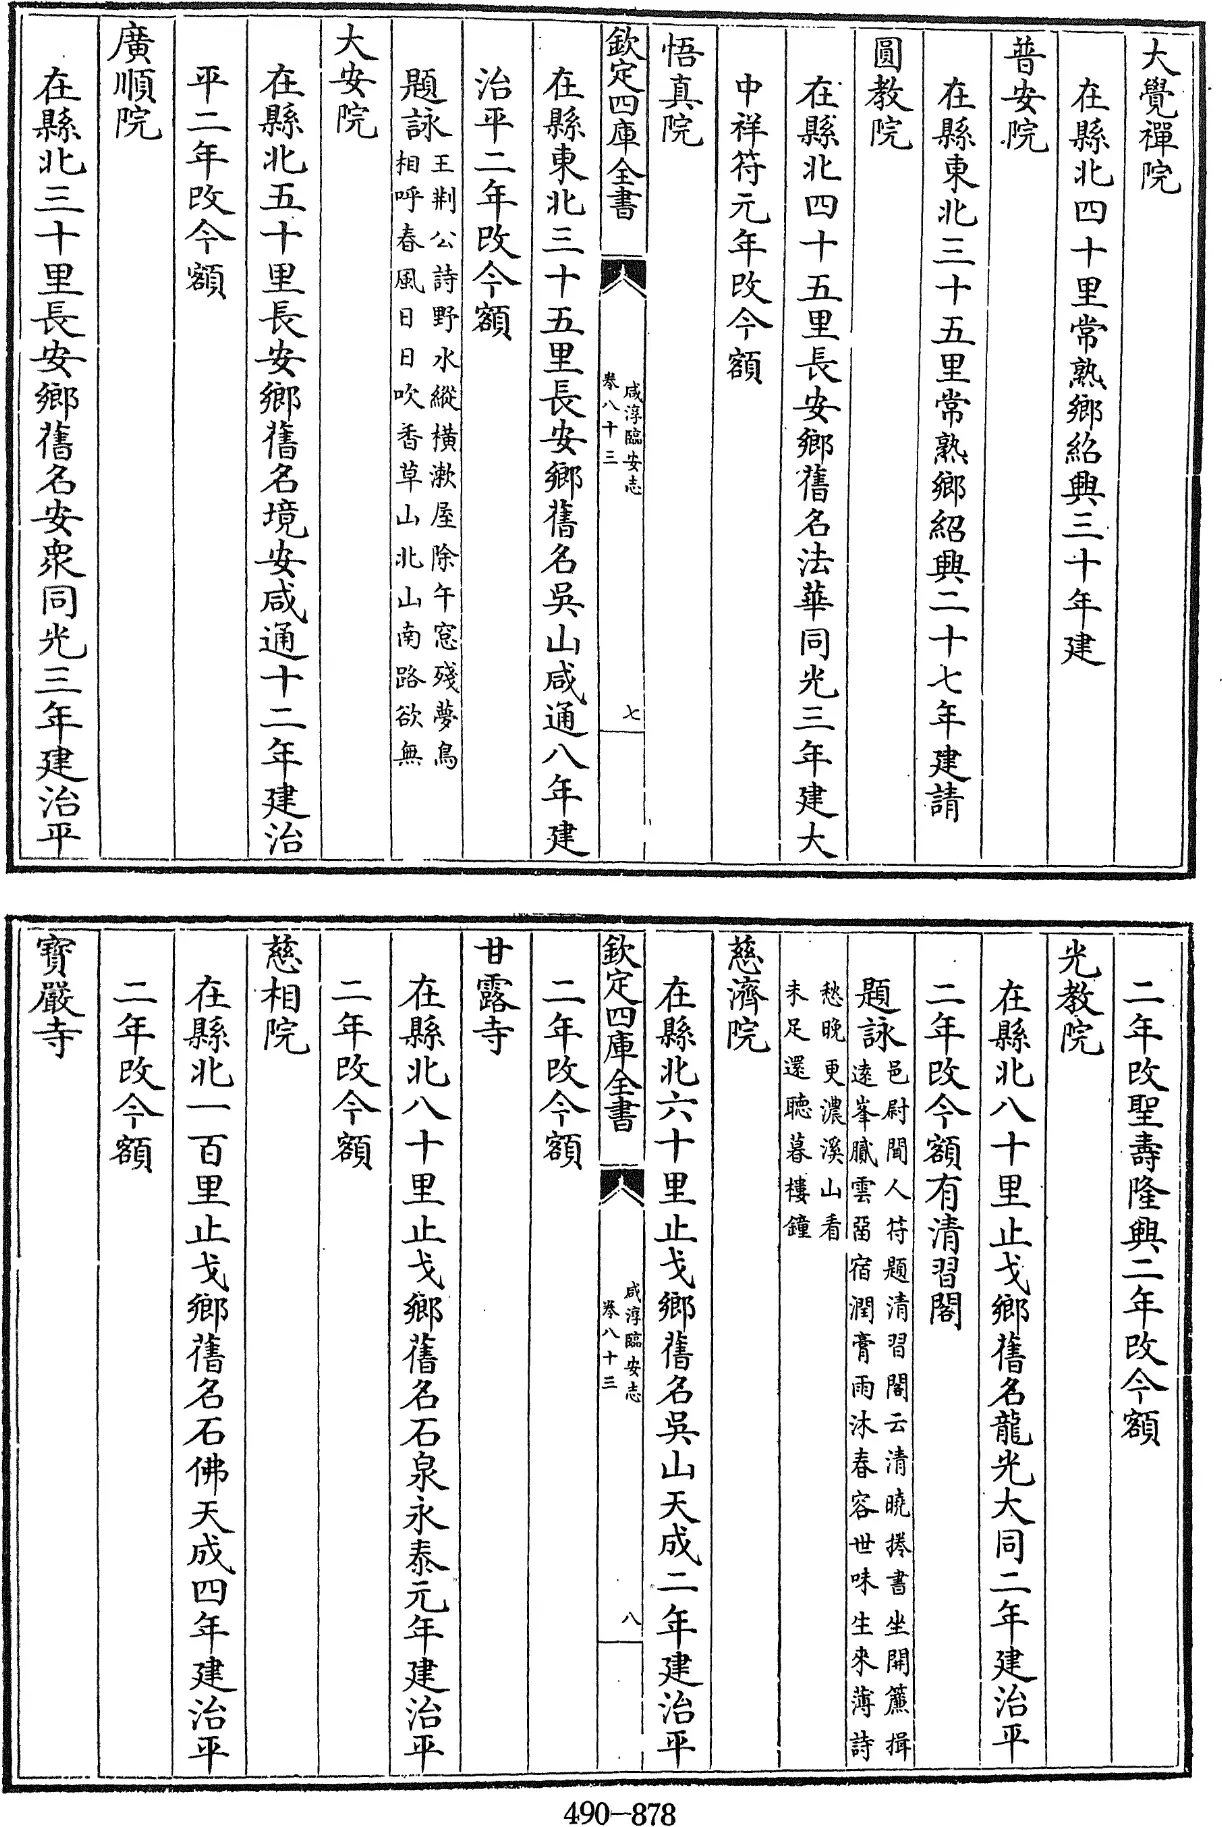 大覺禪院
在縣北四十里常熟鄉紹興三十年建
普安院
在縣東北三十五里常熟鄉紹興二十七年建請
圓教院
在縣北四十五里長安鄉舊名法華同光三年建大
中祥符元年改今額
悟真院
欽定四庫全書
咸淳臨安志
卷八十三
七
在縣東北三十五里長安鄉舊名吳山咸通八年建
治平二年改今額
題詠
王荆公詩野水縱橫漱屋除午窓殘夢鳥
相呼春風日日吹香草山北山南路欲無
大安院
在縣北五十里長安鄉舊名境安咸通十二年建治
平二年改今額
廣順院
在縣北三十里長安鄉舊名安衆同光三年建治平
二年改聖壽隆興二年改今額
光教院
在縣北八十里止戈鄉舊名龍光大同二年建治平
二年改今額有清習閣
題詠
邑尉聞人符題清習閣云清曉捲書坐開簾揖
遠峯膩雲留宿潤膏雨沐春容世味生來薄詩
愁晚更濃溪山看
未足還聽暮樓鐘
慈濟院
在縣北六十里止戈鄉舊名吳山天成二年建治平
欽定四庫全書
咸淳臨安志
卷八十三
八
二年改今額
甘露寺
在縣北八十里止戈鄉舊名石泉永泰元年建治平
二年改今額
慈相院
在縣北一百里止戈鄉舊名石佛天成四年建治平
二年改今額
寶嚴寺
490-878